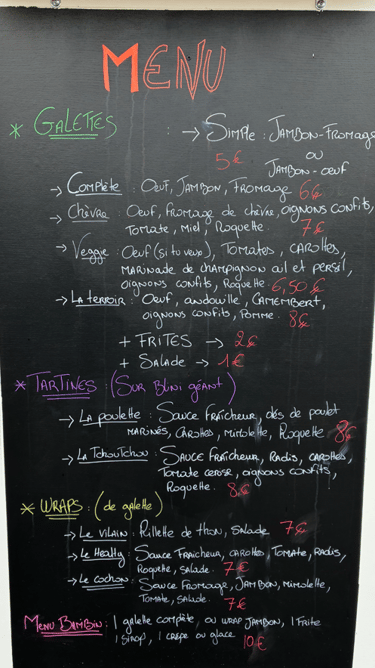 MENU
* GALETTES : → SIMPLE : JAMBON-FROMAGE
5€ OU
JAMBON-OEUF
→ Complète : OEUF, JAMBON, FROMAGE 6€
→ Chèvre : OEUF, FROMAGE de chèvre, oignons confits,
Tomate, Miel, Roquette. 7€
→ Veggie : OEUF (si tu veux), TOMATES, CAROTTES,
MARINADE de champignon ail et persil,
oignons confits, Roquette. 6,50€
→ La terroir : OEUF, andouille, CAMEMBERT,
oignons confits, Pomme. 8€
+ FRITES → 2€
+ Salade → 1€
* TARTINES : (SUR Blini géant)
→ La poulette : Sauce FRAÎCHEUR, dés de poulet
MARINÉS, CAROTTES, Mimolette, Roquette 8€
→ La TchouTchou : SAUCE FRAÎCHEUR, Radis, CAROTTES,
Tomate cerise, oignons confits,
Roquette. 8€
* WRAPS : (de galette)
→ Le Vilain : Rillette de thon, salade 7€
→ Le Healthy : Sauce Fraicheur, CAROTTES, TOMATE, RADIS,
Roquette, salade. 7€
→ Le cochon : Sauce FROMAGE, JAMBON, Mimolette,
TOMATE, SALADE.
7€
MENU BAMBIN : 1 galette complète, ou WRAP JAMBON, 1 FRITE
1 SIROP, 1 CRÊPE OU glace 10€